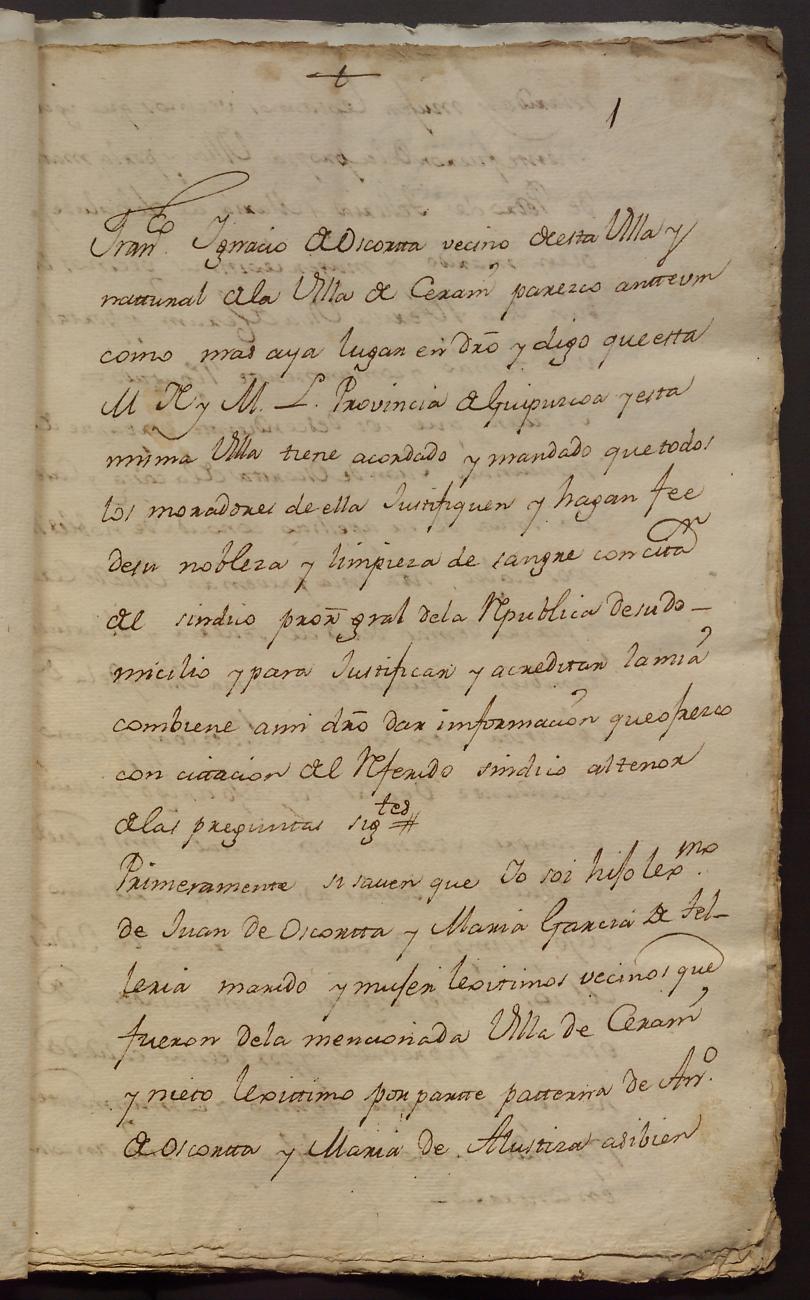 1
Franco Ignacio de Oscortta vecino de esta Villa y
natturalde la Villa de Ceram parezco antte vm
como mas aya lugar en dro y digo que esta
M N y M. L. Provincia de Guipuzcoa y esta
misma Villa tiene acordado y mandado que todos
los moradores de ella Justifiquen y hagan fee
de su nobleza y limpieza de sangre con citan
de el sindico pror gral dela Republica de su do-
micilio y para Justificar y acreditar la mia
combiene ami dro dar imformacion que ofrezco
con cittacion de el Referido sindico altenor
de las preguntas sigtes
Primeramente si saven que Yo soi hijo lexmo.
de Juan de Oscortta y Maria Garcia de Tel-
leria marido y mujer lexitimos vecinos que
fueron dela mencionada Villa de Ceram
y nieto lexittimo por partte patterna de Ano.
de Oscortta y Maria de Alustiza asibien